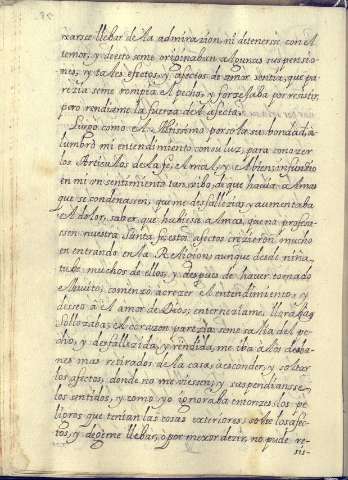 xarse llebar de la admirazion, ni detenerse con el
temor, y de esto se me orijinaban algunas suspensio-
nes, y tales efectos, y afectos de amor sentia, que pa-
rezia se me rompia el pecho, y forzejaba por resistir,
pero rendiame la fuerza del afecto.
Luego como el Altissimo por sola su bondad, a-
lumbró mi entendimiento con su luz, para conozer
los Articulos de la fe, el mal, y el bien, infundio
en mi un sentimiento tan vibo, de que hauia almas
que se condenassen, que me desfallezia, y aumentaba
el dolor, saber que hubiesse almas, que no profesa-
ssen nuestra Santa fe; estos afectos crezieron mucho
en entrando en la Religion, aunque desde niña,
tube muchos de ellos, y despues de hauer tomado
el Auito, comenzó a crezer el entendimiento, y
desseo, á el amor de Dios; enternezíame, lloraba, y
sollozaba, el corazon parezia se me salia del pe-
cho, y desfallezida, y rendida, me iba á los desba-
nes mas retirados de la casa, a esconder, y soltar
los afectos, donde no me viesen, y suspendiansse
los sentidos, y como yo ignoraba entonzes, los pe-
ligros que tenian las cosas exteriores, solte los afec-
tos, y dejeme llebar, o por mexor dezir, no pude re-
sis-